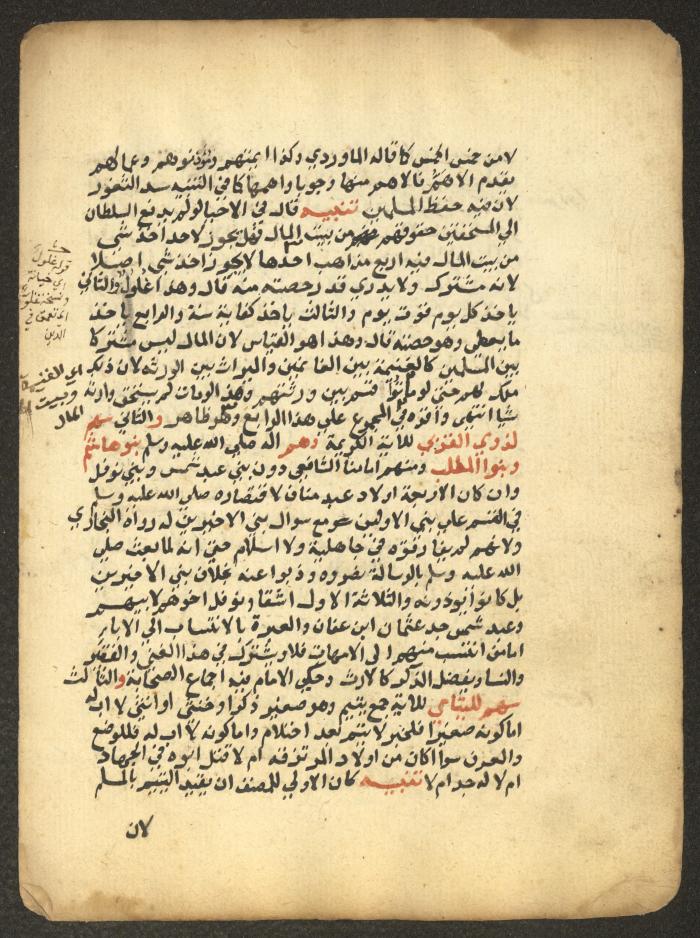 لا من خمس الخمس كما قاله الماوردي وكذا ايمتهم ومؤذنوهم وعمالهم
يقدم الاهم فالاهم منها وجوبا واهمها كما في التنبيه سد الثغور
لان فيه حفظ المسلمين تنبيه قال في الاحيا لو لم يدفع السلطان
الي المستحقين حقوقهم من بيت المال فهل يجوز لاحد اخذ شي
من بيت المال فيه اربع مذاهب احدها لا يجوز اخذ شي اصلا
لانه مشترك ولا يدري قدر حصته منه قال وهذا غلول والثاني
ياخذ كل يوم قوت يوم والثالث ياخذ كفاية سنة والرابع ياخذ
ما يعطي وهو حصته قال وهذا هو القياس لان المال ليس مشتركا
بين المسلمين كالغنيمة بين الغانمين والميراث بين الورثة لان ذلك
ملك لهم حتى لو ماتوا قسم بين ورثتهم وهذا لو مات لم يستحق وارثه
شيا انتهى واقره في المجموع علي هذا الرابع وهو ظاهر والثاني سهم
لذوي القربي للاية الكريمة وهم اله صلي الله عليه وسلم بنو هاشم
وبنوا المطلب ومنهم امامنا الشافعي دون بني عبد شمس وبني نوفل
وان كان الاربعة اولاد عبد مناف لاقتصاره صلي الله عليه وسلم
في القسم علي بني الاولين مع سوال بني الاخيرين له رواه البخاري
ولانهم لم يفارقوه في جاهلية ولا اسلام حتى انه لما بعث صلي
الله عليه وسلم بالرسالة نصروه وذبوا عنه بخلاف بني الاخيرين
بل كانوا يوذونه والثلاثة الاول اشقا ونوفل اخوهم لابيهم
وعبد شمس جد عثمان ابن عفان والعبرة بالانتساب الي الابا
اما من انتسب منهم الى الامهات فلا ويشترك في هذا الغني والفقير
والنسا ويفضل الذكر كالارث وحكي الامام فيه اجماع الصحابة والثالث
سهم لليتامي للاية جمع يتيم وهو صغير ذكر او خنثي او انثي لا اب له
اما كونه صغيرا فلخبر لا يتم بعد احتلام واما كونه لا اب له فللوضع
والعرف سوا اكان من اولاد المرتزقة ام لا قتل ابوه في الجهاد
ام لا له جد ام لا تنبيه كان الاولي للمصنف ان يقيد اليتيم بالمسلم
لان
قوله غلول
اي خيانة
وبيت
المال